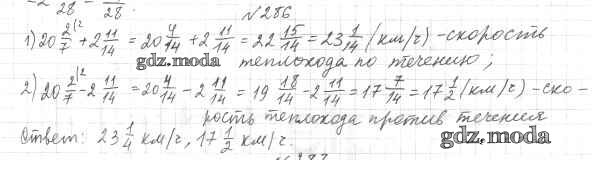 -2 /28 - /28.
№286
1) 20 2/7 |2 + 2 11/14 = 20 4/14 + 2 11/14 = 22 15/14 = 23 1/14 (км/ч) - скорость
gdz.moda теплохода по течению;
2) 20 2/7 |2 - 2 11/14 = 20 4/14 - 2 11/14 = 19 18/14 - 2 11/14 = 17 7/14 = 17 1/2 (км/ч) - ско-
рость теплохода против течения
Ответ: 23 1/4 км/ч, 17 1/2 км/ч. gdz.moda